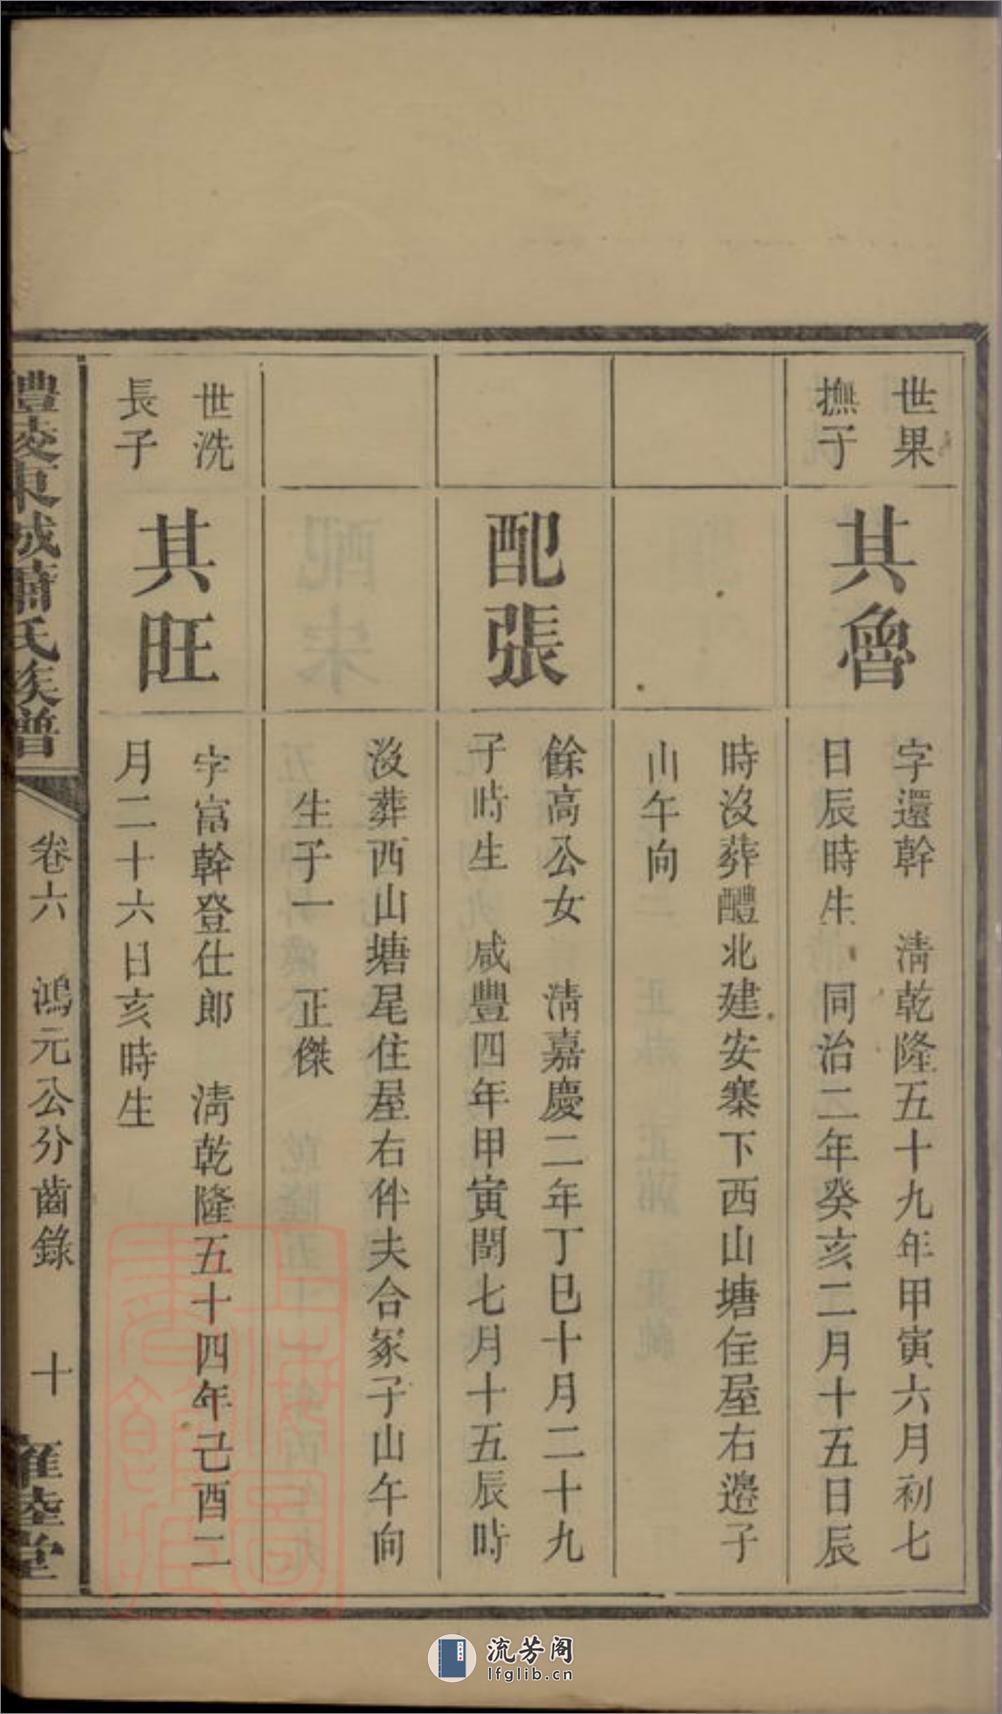 世果
撫子
其魯
字還幹　淸乾隆五十九年甲寅六月初七
日辰時生　同治二年癸亥二月十五日辰
時沒葬醴北建安寨下西山塘住屋右邊子
山午向
配張
餘高公女　淸嘉慶二年丁巳十月二十九
子時生　咸豐四年甲寅閏七月十五辰時
沒葬西山塘尾住屋右伴夫合冢子山午向
生子一　正傑
世洗
長子
其旺
字富幹登仕郎　淸乾隆五十四年己酉二
月二十六日亥時生
醴陵東城蕭氏族譜
卷六　鴻元公分齒錄　十
睦堂
流芳阁
lfglib.cn